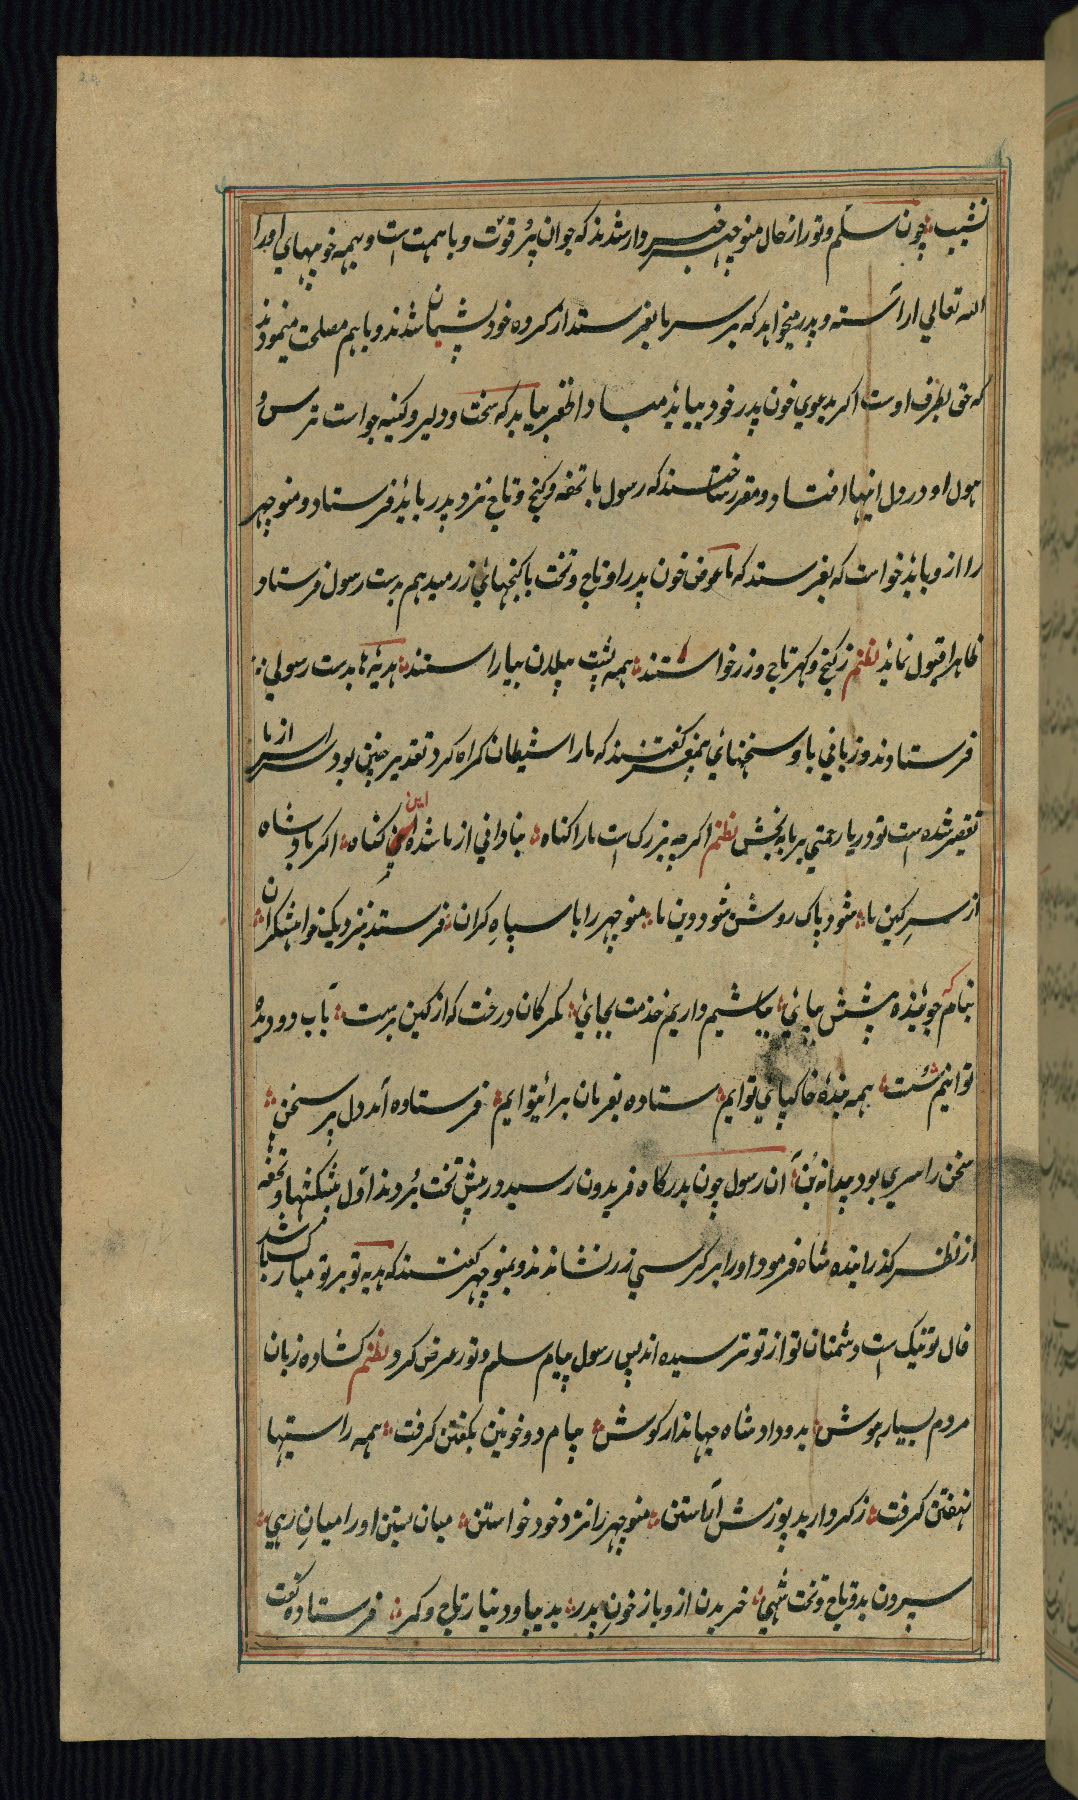 نشیب چون سلم و تور از حال منوچهر خبردار شدند که جوان پر قوت و با همت است و بهمه خوبیهای او را
الله تعالی اراسته و پدر میخواهد که بر سر ما بفرستد از کرده خود پشیمان شدند و باهم مصلحت مینمودند
که حق بطرف اوست اکر بدعوی خون پدر خود بیاید مبادا ظفر بیابد که سخت و دلیر و کینه جو است ترس و
هول او در دل اینها افتاد و مقرر ساختند که رسول با تحفه و کنج و تاج نزد پدر باید فرستاد و منوچهر
را ازو باید خواست که بفرستد که ما عوض خون پدر او تاج و تخت با کنجهای زر میدهم بدست رسول فرستاد
ظاهرا قبول نماید نظم ز کنج و کهر تاج و زر خواستند همه پشت پیلان بیاراستند هدیه ها بدست رسولی
فرستادند و زبانی با و سخنهای گفتند که ما را شیطان کمراه کرد تقدیر چنین بود سراسر از ما
تقصیر شده است تو دریا رحمتی بر ما به بخش نظم اکرچه بزرک است ما را کناه بنادانی از ما شده این کناه اکر پادشاه
از سر کین ما شود پاک روشن شود دین ما منوچهر را با سپاه کران فرستد بنزدیک خواهشکران
بدان تا که چو بنده پیشش بپای بباشیم و داریم خدمت بجای مکر کان درخت که از کین برست بآب دو دیده
توانیم شست همه بندهٔ خاکپای توایم ستاده بفرمان برای توایم فرستاده آمد دل پر سخن
سخن را سری بود پیدا نه بن آن رسول چون بدرکاه فریدون رسید در پیش تخت بردند اول پیشکشها و تحفه ها
از نظر کذرانیده شاه فرمود او را بر کرسی زر نشاندند و بمنوچهر کفتند که هدیه تو بر تو مبارکباشد
فال تو نیک است دشمنان تو از تو ترسیده اند پس رسول پیام سلم و تور عرض کرد نظم کشاده زبان
مردم بسیار هوش بدو داد شاه جهاندار کوش پیام دو خونین بکفتن کرفت همه راستیها
نهفتن کرفت ز کردار بد پوزش آراستن منوچهر را نزد خود خواستن میان بستن او را میان رهی
سپردن بدو تاج و تخت شهی خریدن ازو باز خون پدر بدیبا و دینار و تاج و کمر فرستاده کفت